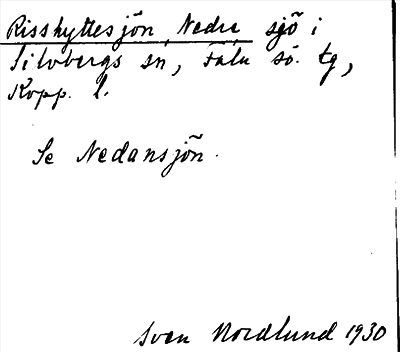 Risshyttesjön, Nedre, sjö i
Silvbergs sn, Falu sö. tg,
Kopp. l.
Se Nedansjön.
Sven Nordlund 1930